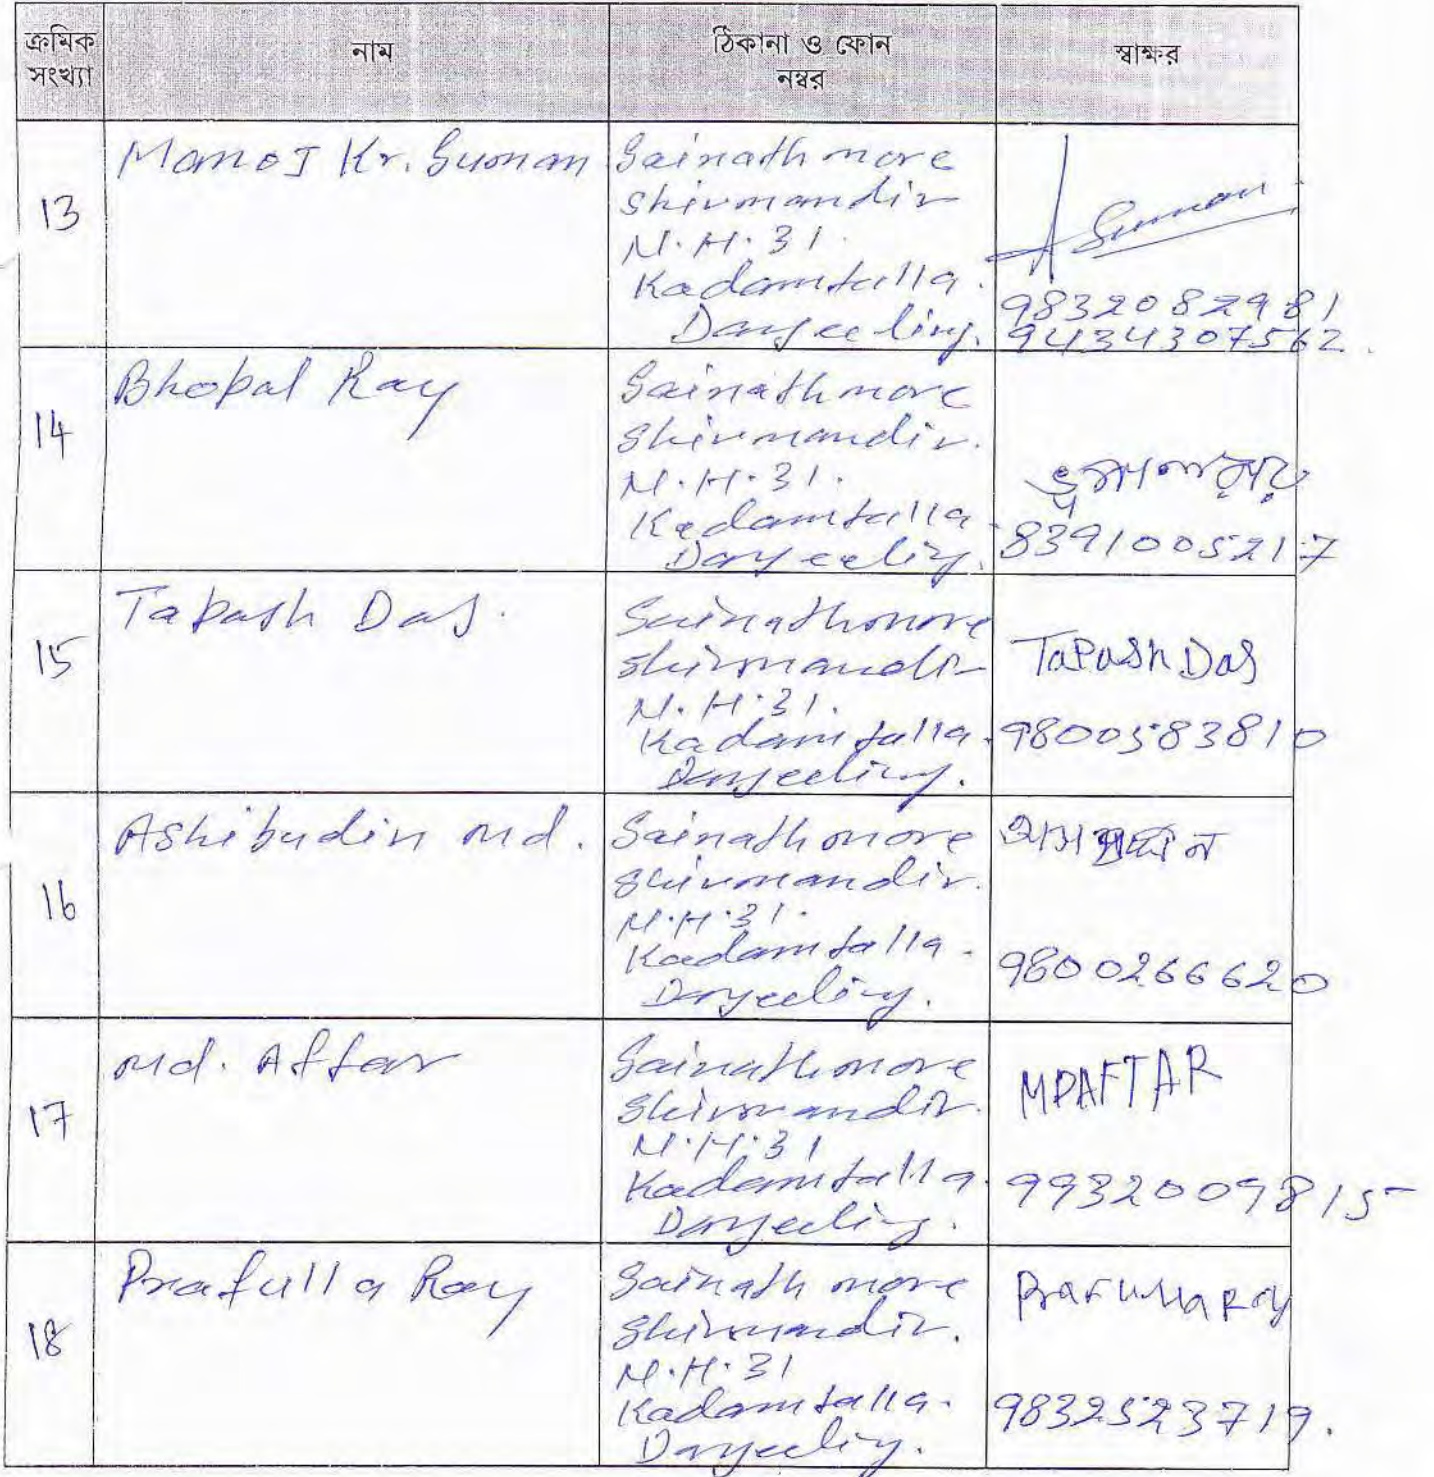 ক্রমিক সংখ্যা
নাম
ঠিকানা ও ফোন নম্বর
স্বাক্ষর
13
Manoj Kr. Suman
Sainath more
Shivmandir
N.H.31.
Kadamtalla.
Darjeeling.
Suman
9832082981
9434307562
14
Bhopal Ray
Sainath more
Shivmandir.
N.H.31.
Kadamtalla
Darjeeling.
8391005217
15
Tapash Das.
Sainath more
Shivmandir
N.H.31.
Kadamtalla.
Darjeeling.
Tapash Das
9800583810
16
Ashibudin Md.
Sainath more
Shivmandir.
N.H.31.
Kadamtalla.
Darjeeling.
9800266620
17
Md. Aftar
Sainath more
Shivmandir.
N.H.31
Kadamtalla.
Darjeeling.
MDAFTAR
9932009815
18
Prafulla Ray
Sainath more
Shivmandir.
N.H.31
Kadamtalla.
Darjeeling.
Prafulla Ray
9832523719.